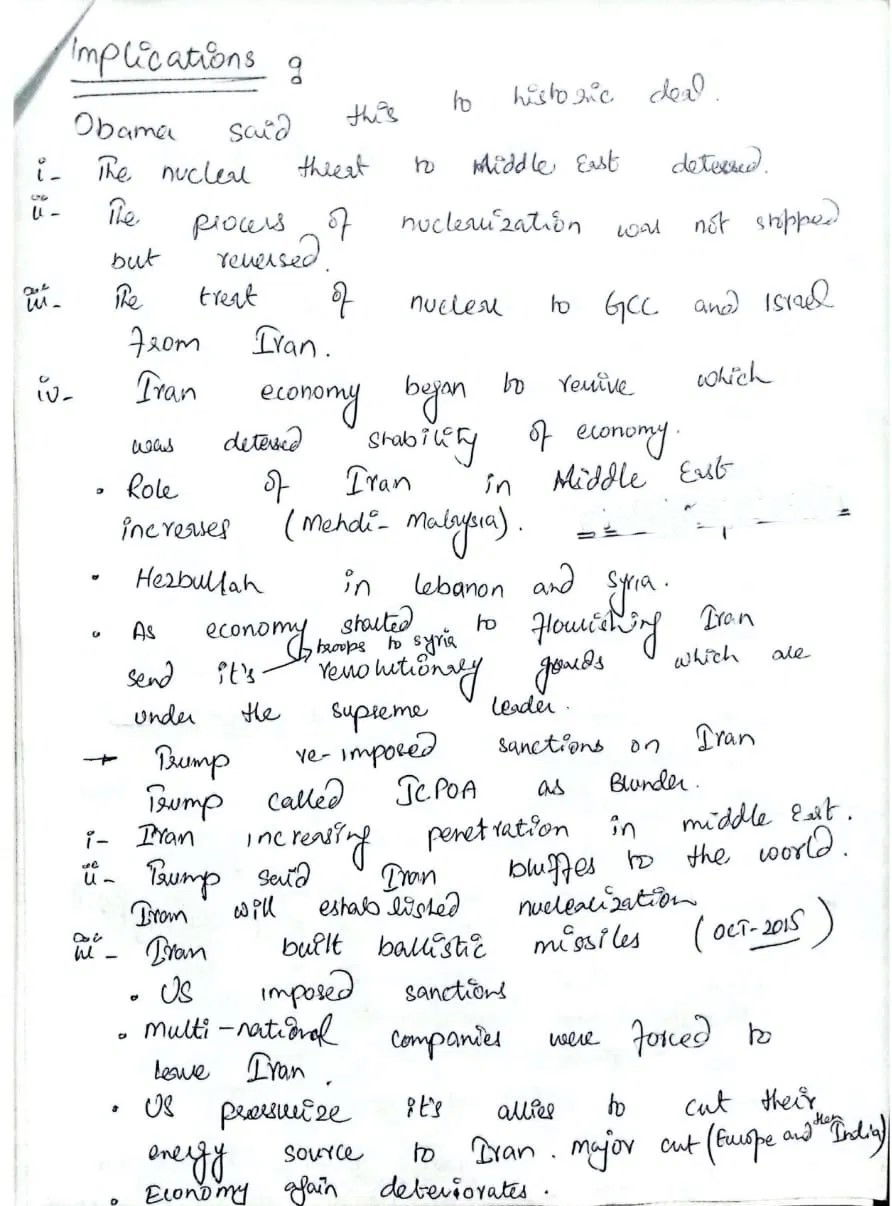 Implications :
Obama said this to historic deal.
i- The nuclear threat to Middle East deterred.
ii- The process of nuclearization was not stopped
but reversed.
iii- The treat of nuclear to GCC and Israel
from Iran.
iv- Iran economy began to revive which
was deterred stability of economy.
• Role of Iran in Middle East
increases (Mehdi- Malaysia).
• Hezbullah in Lebanon and Syria.
• As economy started to flourishing Iran
troops to Syria
send it's revolutionary guards which are
under the supreme leader.
→ Trump re-imposed sanctions on Iran
Trump called JCPOA as Blunder.
i- Iran increasing penetration in middle East.
ii- Trump said Iran bluffes to the world.
Iran will established nuclearization
iii- Iran built ballistic missiles (OCT-2015)
• US imposed sanctions
• Multi-national companies were forced to
leave Iran.
• US pressurize it's allies to cut their
energy source to Iran. major cut (Europe and then India)
• Economy again deteriorates.